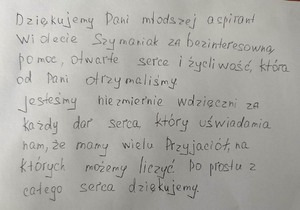 Dziękujemy Pani młodszej aspirant
Wiolecie Szymaniak za bezinteresowną
pomoc, otwarte serce i życzliwość, którą
od Pani otrzymaliśmy.
Jesteśmy niezmiernie wdzięczni za
każdy dar serca który uświadamia
nam, że mamy wielu Przyjaciół, na
których możemy liczyć. Po prostu z
całego serca dziękujemy.